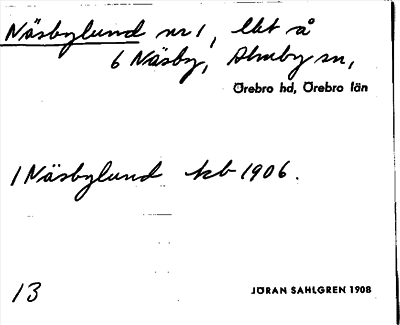 Näsbylund nr 1, lht å
6 Näsby, Almby sn,
Örebro hd, Örebro län
1 Näsbylund kb 1906.
13
JÖRAN SAHLGREN 1908